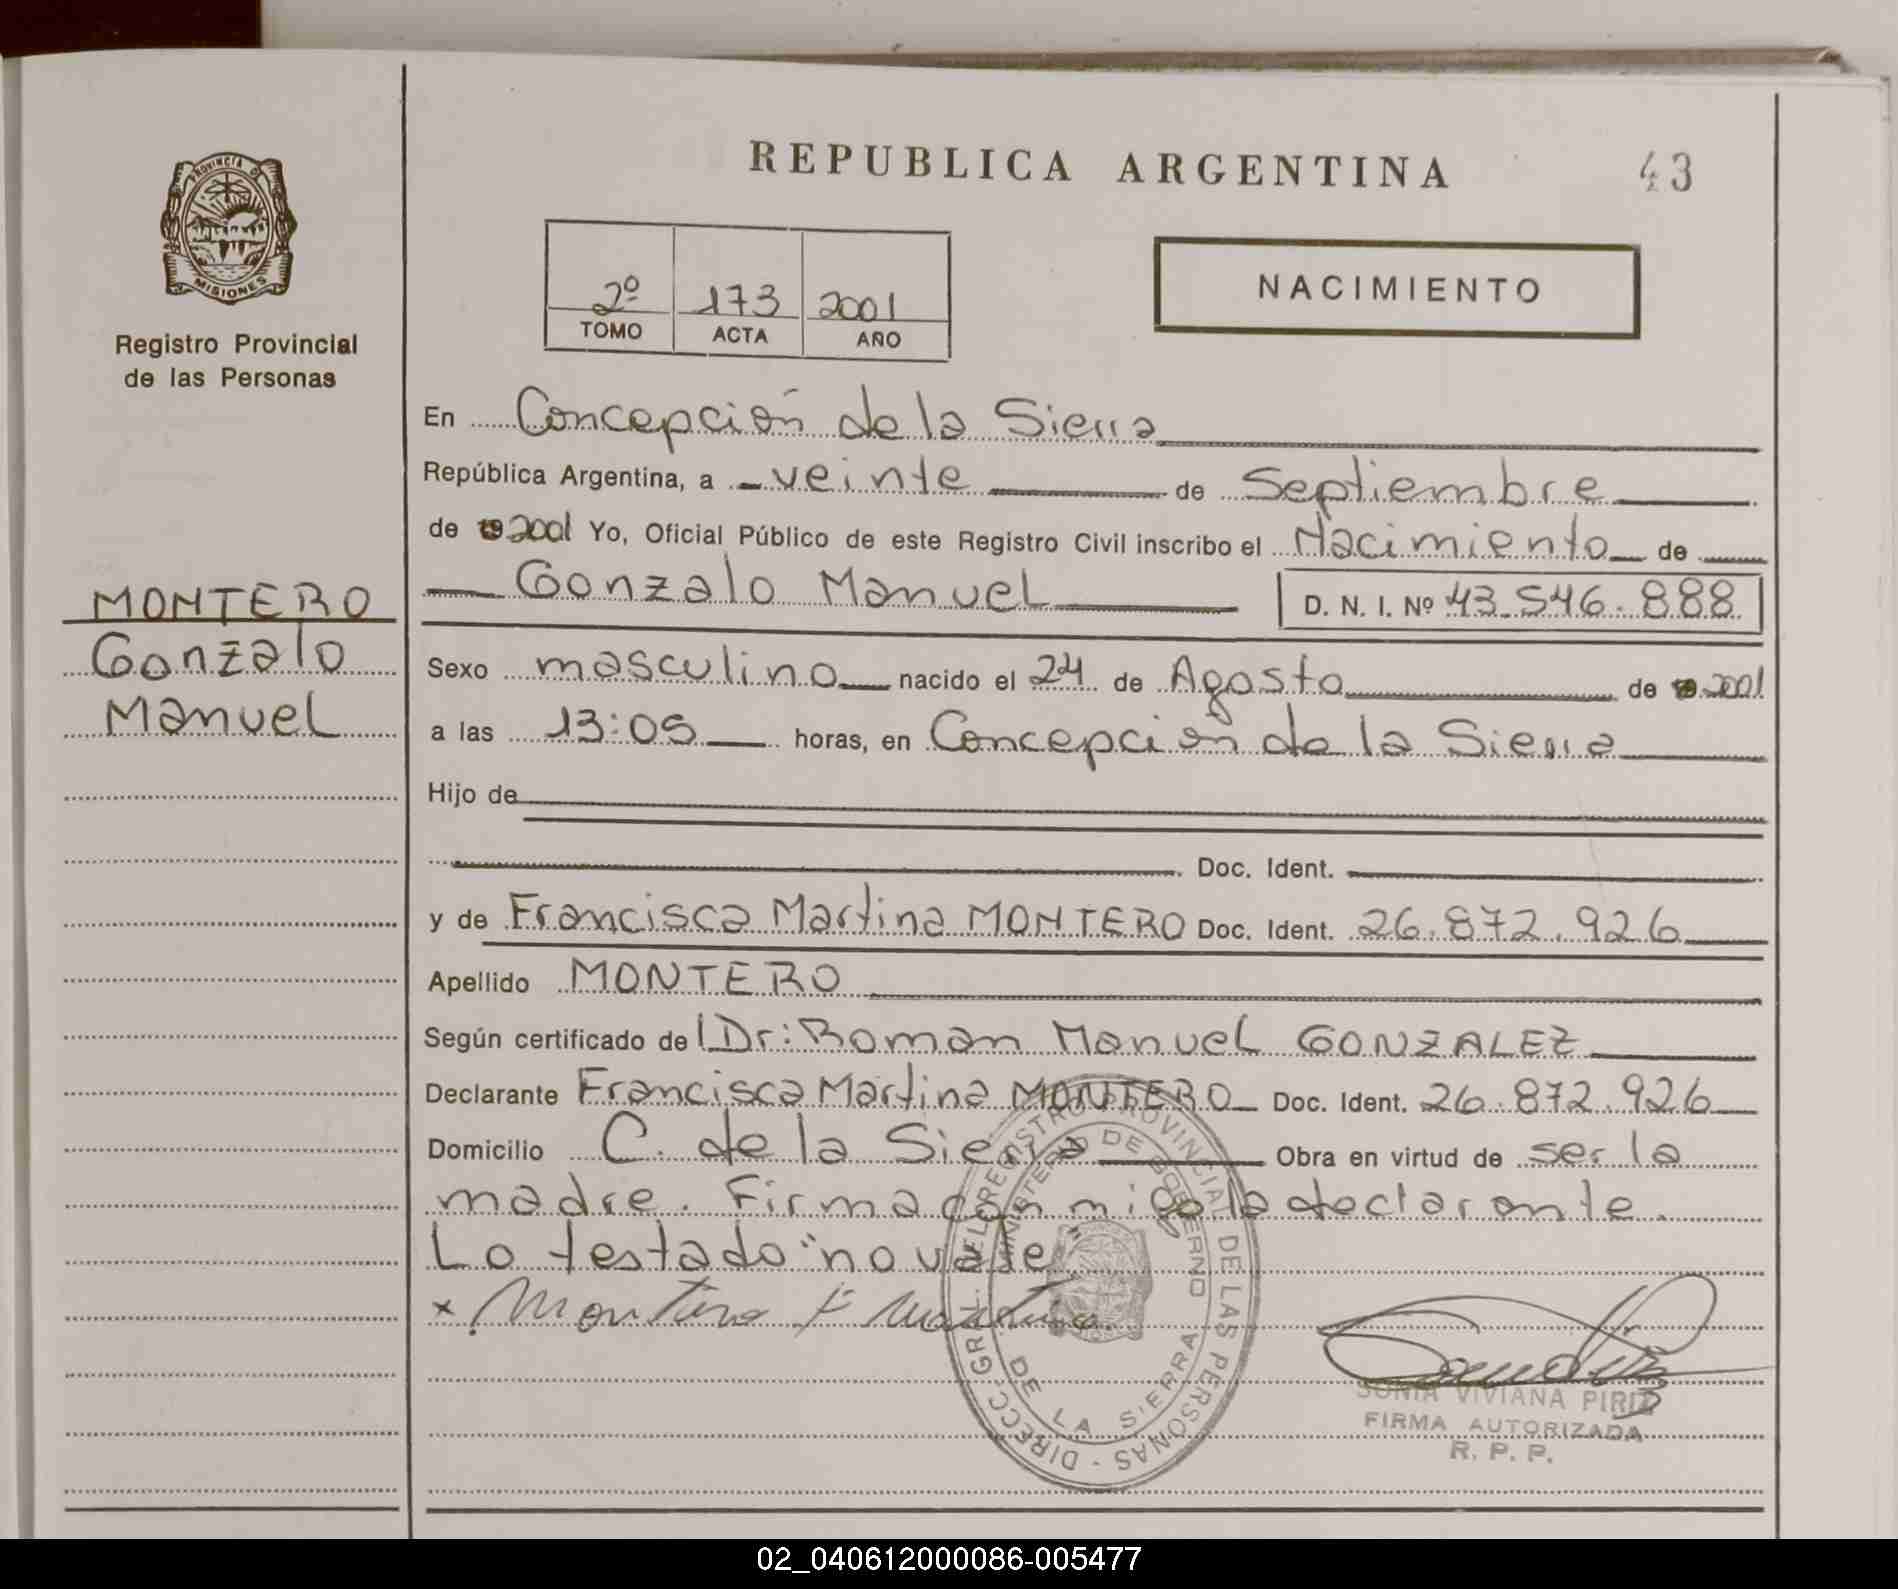 REPUBLICA ARGENTINA
43
PROVINCIA DE
MISIONES
Registro Provincial
de las Personas
2º 173 2001
TOMO ACTA AÑO
NACIMIENTO
MONTERO
Gonzalo
Manuel
En Concepción de la Sierra
República Argentina, a veinte de Septiembre
de 19 2001 Yo, Oficial Público de este Registro Civil inscribo el Nacimiento de
Gonzalo Manuel D. N. I. Nº 43.546.888
Sexo masculino nacido el 24 de Agosto de 19 2001
a las 13:05 horas, en Concepción de la Sierra
Hijo de
Doc. Ident.
y de Francisca Martina MONTERO Doc. Ident. 26.872.926
Apellido MONTERO
Según certificado de l Dr: Roman Manuel GONZALEZ
Declarante Francisca Martina MONTERO Doc. Ident. 26.872.926
Domicilio C. de la Sierra Obra en virtud de ser la
madre. Firma con migo la declarante.
Lo testado "no vale"
x Montero F Martina.
DIRECC. GRAL. DEL REGISTRO PROVINCIAL DE LAS PERSONAS -
MINISTERIO DE GOBIERNO
DE LA SIERRA
SONIA VIVIANA PIRIZ
FIRMA AUTORIZADA
R. P. P.
02_040612000086-005477